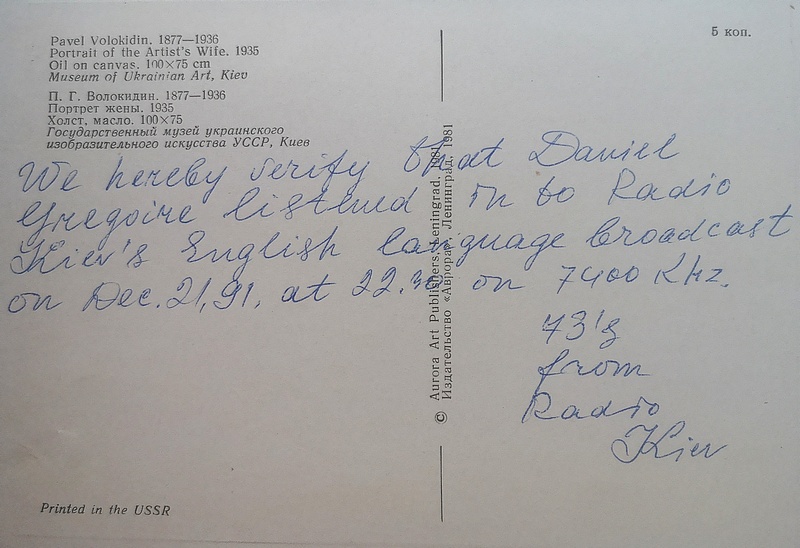 Pavel Volokidin. 1877—1936
Portrait of the Artist's Wife. 1935
Oil on canvas. 100×75 cm
Museum of Ukrainian Art, Kiev
П. Г. Волокидин. 1877—1936
Портрет жены. 1935
Холст, масло. 100×75
Государственный музей украинского
изобразительного искусства УССР, Киев
5 коп.
We hereby verify that Daniel
Gregoire listened in to Radio
Kiev's English language broadcast
on Dec. 21, 91, at 22.30 on 7400 KHz.
73's
from
Radio
Kiev
© Aurora Art Publishers, Leningrad, 1981
Издательство «Аврора», Ленинград, 1981
Printed in the USSR